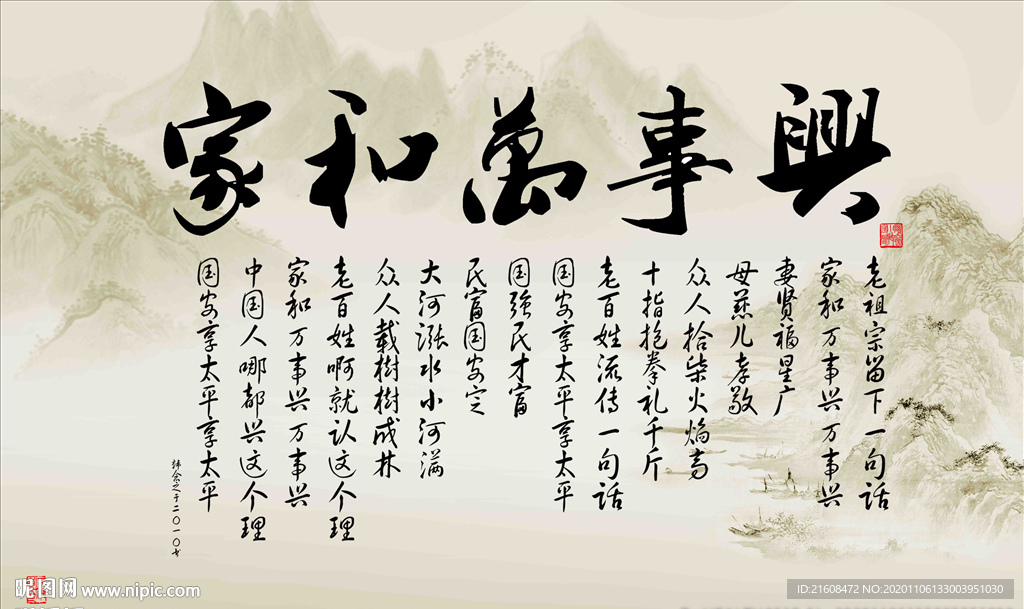 家和萬事興
老祖宗留下一句话
家和万事兴万事兴
妻贤福星广
母慈儿孝敬
众人拾柴火焰高
十指抱拳礼千斤
老百姓流传一句话
国安享太平享太平
国强民才富
民富国安定
大河涨水小河满
众人載樹樹成林
老百姓啊就认这个理
家和万事兴万事兴
中国人哪都兴这个理
国安享太平享太平
于二〇一〇
昵图网 www.nipic.com
ID:21608472 NO:20201106133003951030